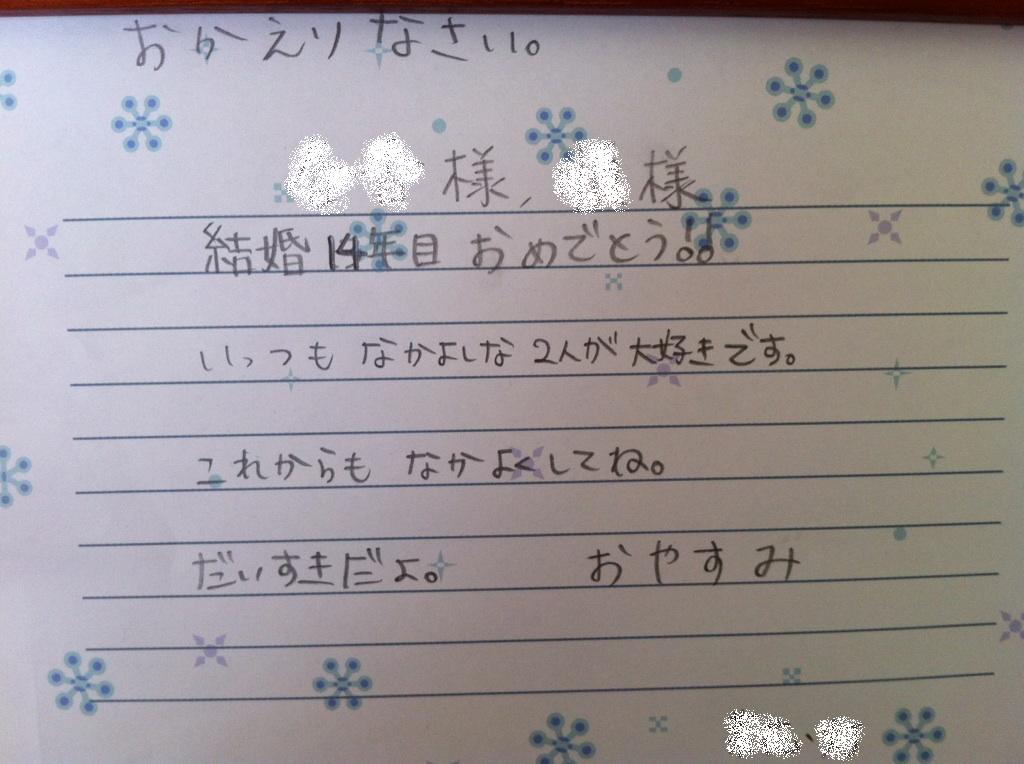 おかえりなさい。
様, 様
結婚14年目 おめでとう!!
いっつも なかよしな 2人が 大好きです。
これからも なかよくしてね。
だいすきだよ。 おやすみ